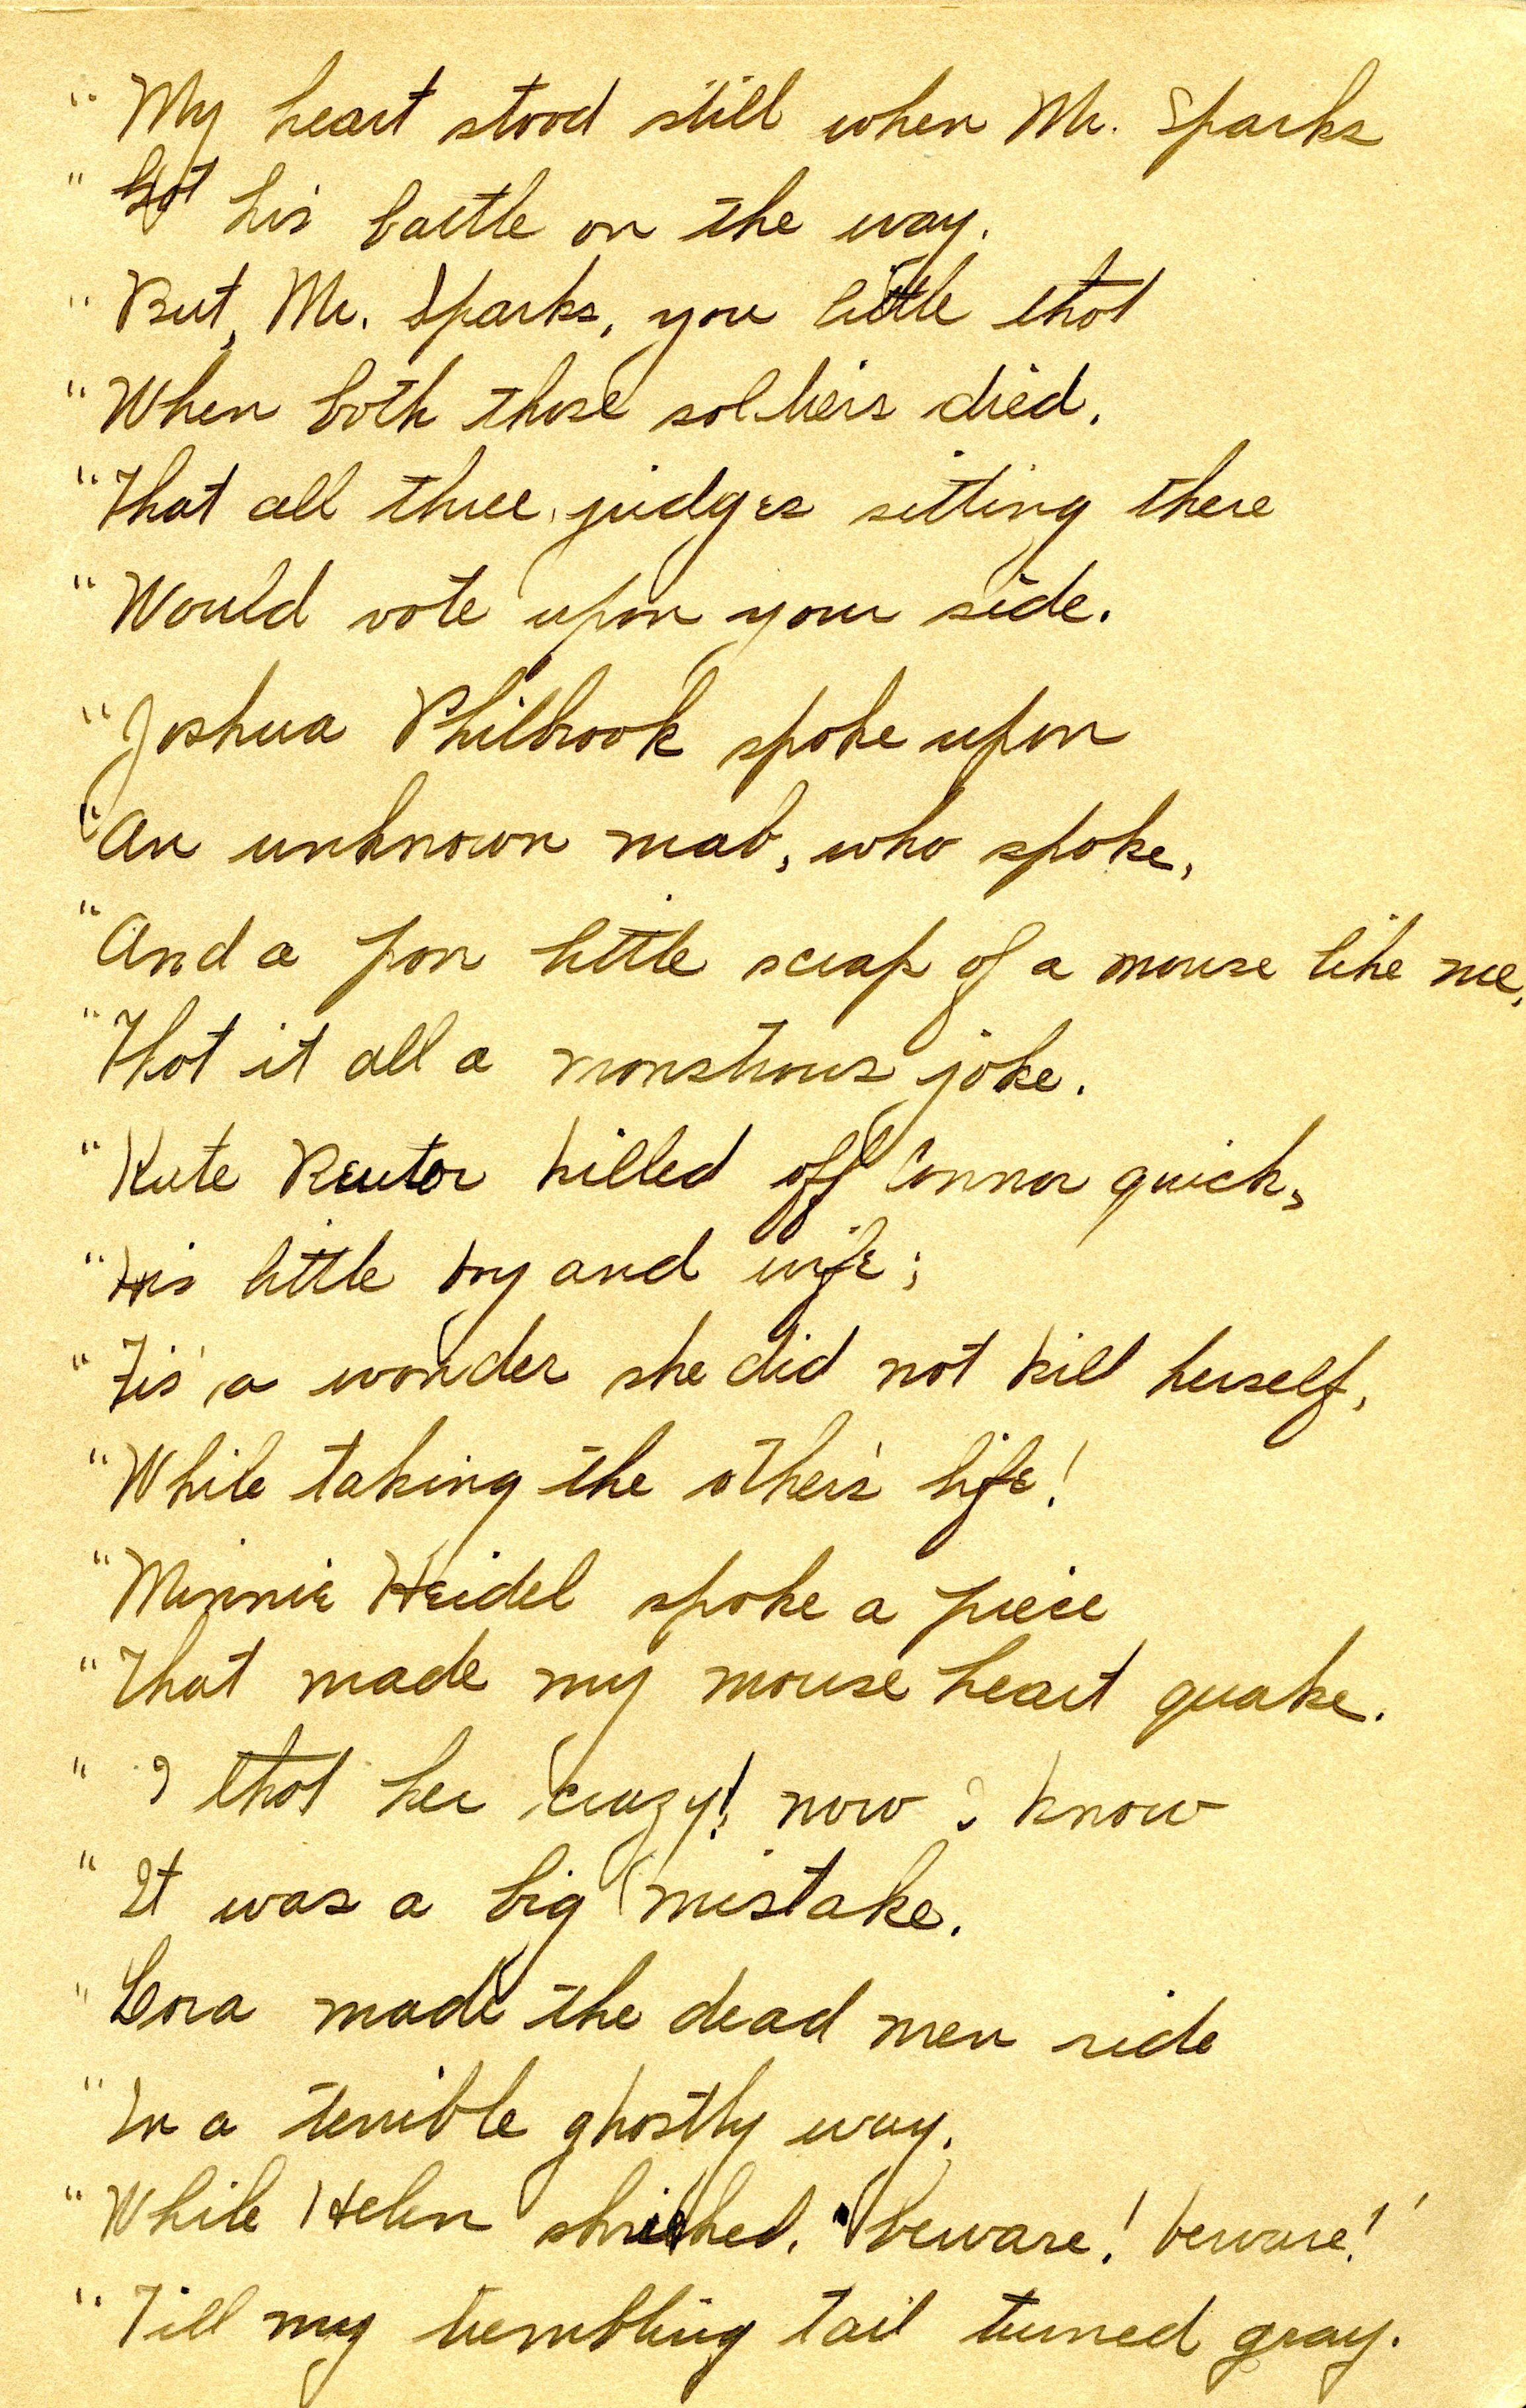 " My heart stood still when Mr. Sparks
" Got his battle on the way.
" But, Mr. Sparks, you little thot
" When both those soldiers died,
" That all three judges sitting there
" Would vote upon your side.
" Joshua Philbrook spoke upon
" An unknown mab, who spoke,
" And a poor little scrap of a mouse like me,
" Thot it all a monstrous joke.
" Kate Reutor killed off Connor quick,
" His little boy and wife;
" Tis' a wonder she did not kill herself,
" While taking the other's life!
" Minnie Heidel spoke a piece
" That made my mouse heart quake.
" I thot her crazy! now I know
" It was a big mistake.
" Cora made the dead men ride
" In a terrible ghostly way.
" While Helen shrieked, "beware! beware!'
" Till my trembling tail turned gray.